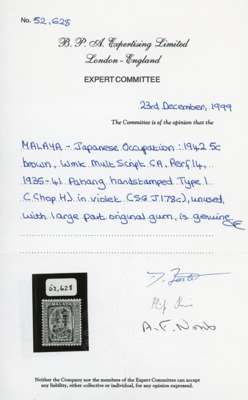 No. 52,628
B. P. A. Expertising Limited
London - England
EXPERT COMMITTEE
23rd December, 1999
The Committee is of the opinion that the
MALAYA - Japanese Occupation: 1942 5c
brown, Wmk Mult Script CA, Perf 14,
1935-41 Pahang handstamped Type 1
(Chop H) in violet (SG J178c), unused,
with large part original gum, is genuine
62,628
Neither the Company nor the members of the Expert Committee can accept
any liability, either collective or individual, for any opinion expressed.